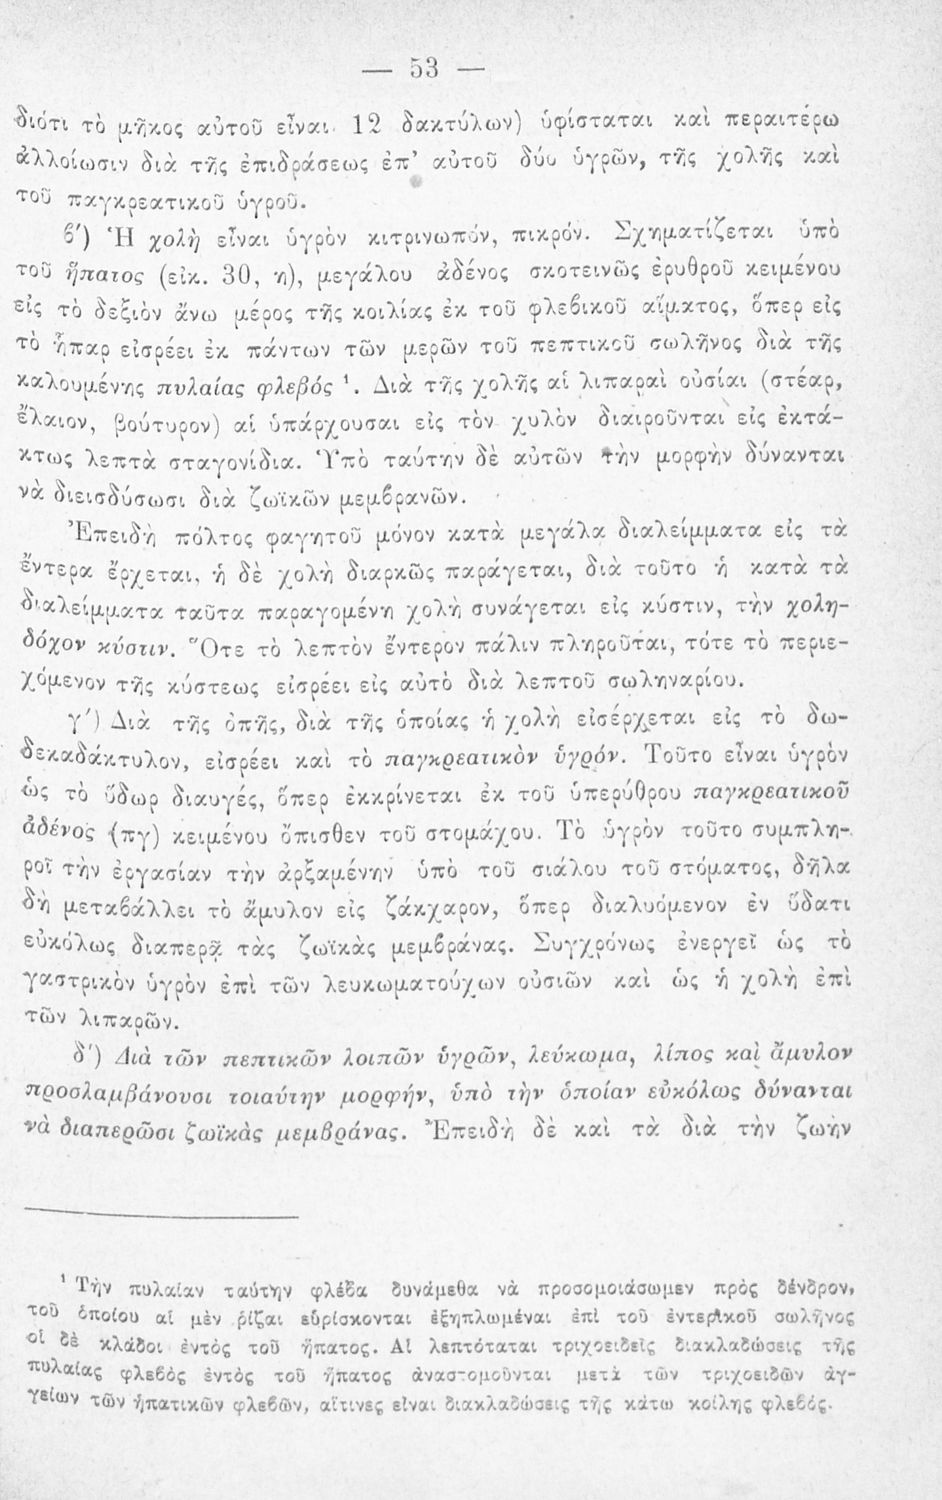 — 53 —
διότι τὸ μῆκος αὐτοῦ εἶναι 12 δακτύλων) ὑφίσταται καὶ περαιτέρω
ἀλλοίωσιν διὰ τῆς ἐπιδράσεως ἐπ’ αὐτοῦ δύο ὑγρῶν, τῆς χολῆς καὶ
τοῦ παγκρεατικοῦ ὑγροῦ.
β′) Ἡ χολὴ εἶναι ὑγρὸν κιτρινωπόν, πικρόν. Σχηματίζεται ὑπὸ
τοῦ ἥπατος (εἰκ. 30, η), μεγάλου ἀδένος σκοτεινῶς ἐρυθροῦ κειμένου
εἰς τὸ δεξιὸν ἄνω μέρος τῆς κοιλίας ἐκ τοῦ φλεβικοῦ αἵματος, ὅπερ εἰς
τὸ ἧπαρ εἰσρέει ἐκ πάντων τῶν μερῶν τοῦ πεπτικοῦ σωλῆνος διὰ τῆς
καλουμένης πυλαίας φλεβός ¹. Διὰ τῆς χολῆς αἱ λιπαραὶ οὐσίαι (στέαρ,
ἔλαιον, βούτυρον) αἱ ὑπάρχουσαι εἰς τὸν χυλὸν διαιροῦνται εἰς ἐκτά-
κτως λεπτὰ σταγονίδια. Ὑπὸ ταύτην δὲ αὐτῶν τὴν μορφὴν δύνανται
νὰ διεισδύσωσι διὰ ζωϊκῶν μεμβρανῶν.
Ἐπειδὴ πόλτος φαγητοῦ μόνον κατὰ μεγάλα διαλείμματα εἰς τὰ
ἔντερα ἔρχεται, ἡ δὲ χολὴ διαρκῶς παράγεται, διὰ τοῦτο ἡ κατὰ τὰ
διαλείμματα ταῦτα παραγομένη χολὴ συνάγεται εἰς κύστιν, τὴν χολη-
δόχον κύστιν. Ὅτε τὸ λεπτὸν ἔντερον πάλιν πληροῦται, τότε τὸ περιε-
χόμενον τῆς κύστεως εἰσρέει εἰς αὐτὸ διὰ λεπτοῦ σωληναρίου.
γ′) Διὰ τῆς ὀπῆς, διὰ τῆς ὁποίας ἡ χολὴ εἰσέρχεται εἰς τὸ δω-
δεκαδάκτυλον, εἰσρέει καὶ τὸ παγκρεατικὸν ὑγρόν. Τοῦτο εἶναι ὑγρὸν
ὡς τὸ ὕδωρ διαυγές, ὅπερ ἐκκρίνεται ἐκ τοῦ ὑπερύθρου παγκρεατικοῦ
ἀδένος (πγ) κειμένου ὄπισθεν τοῦ στομάχου. Τὸ ὑγρὸν τοῦτο συμπλη-
ροῖ τὴν ἐργασίαν τὴν ἀρξαμένην ὑπὸ τοῦ σιάλου τοῦ στόματος, δῆλα
δὴ μεταβάλλει τὸ ἄμυλον εἰς ζάκχαρον, ὅπερ διαλυόμενον ἐν ὕδατι
εὐκόλως διαπερᾷ τὰς ζωϊκὰς μεμβράνας. Συγχρόνως ἐνεργεῖ ὡς τὸ
γαστρικὸν ὑγρὸν ἐπὶ τῶν λευκωματούχων οὐσιῶν καὶ ὡς ἡ χολὴ ἐπὶ
τῶν λιπαρῶν.
δ′) Διὰ τῶν πεπτικῶν λοιπῶν ὑγρῶν, λεύκωμα, λίπος καὶ ἄμυλον
προσλαμβάνουσι τοιαύτην μορφήν, ὑπὸ τὴν ὁποίαν εὐκόλως δύνανται
νὰ διαπερῶσι ζωϊκὰς μεμβράνας. Ἐπειδὴ δὲ καὶ τὰ διὰ τὴν ζωὴν
¹ Τὴν πυλαίαν ταύτην φλέβα δυνάμεθα νὰ προσομοιάσωμεν πρὸς δένδρον,
τοῦ ὁποίου αἱ μὲν ῥίζαι εὑρίσκονται ἐξηπλωμέναι ἐπὶ τοῦ ἐντερικοῦ σωλῆνος
οἱ δὲ κλάδοι ἐντὸς τοῦ ἥπατος. Αἱ λεπτόταται τριχοειδεῖς διακλαδώσεις τῆς
πυλαίας φλεβὸς ἐντὸς τοῦ ἥπατος ἀναστομοῦνται μετὰ τῶν τριχοειδῶν ἀγ-
γείων τῶν ἡπατικῶν φλεβῶν, αἵτινες εἶναι διακλαδώσεις τῆς κάτω κοίλης φλεβός.